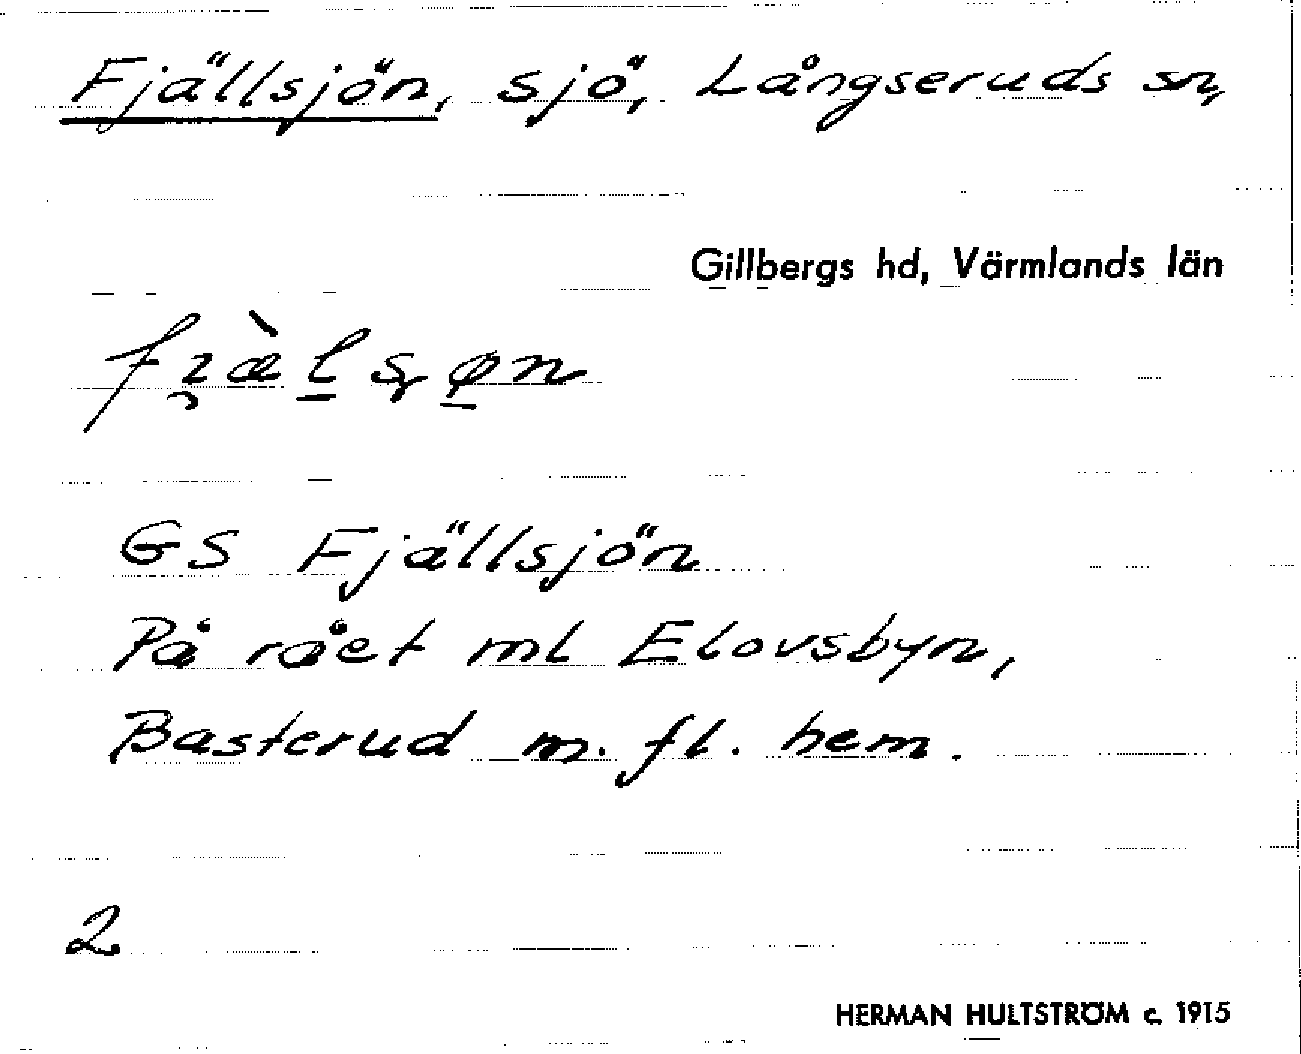 Fjällsjön, sjö, Långseruds sn,
Gillbergs hd, Värmlands län
GS Fjällsjön
På rået ml Elovsbyn,
Basterud m. fl. hem.
2
HERMAN HULTSTRÖM c. 1915